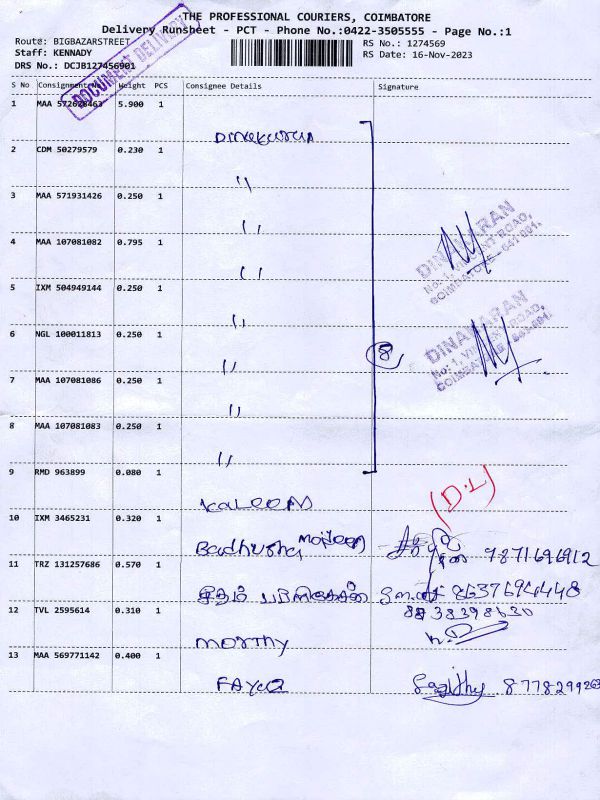 THE PROFESSIONAL COURIERS, COIMBATORE
Delivery Runsheet - PCT - Phone No.:0422-3505555 - Page No.:1
Route: BIGBAZARSTREET
RS No.: 1274569
Staff: KENNADY
RS Date: 16-Nov-2023
DRS No.: DCJB127456901
DOCUMENT DELIVERY
S No Consignment No Weight PCS Consignee Details Signature
1 MAA 572628463 5.900 1
2 CDM 50279579 0.230 1
"
3 MAA 571931426 0.250 1
"
4 MAA 107081082 0.795 1
"
DINAKARAN
No: 1, ROAD,
COIMBATORE - 641 001.
5 IXM 504949144 0.250 1
"
6 NGL 100011813 0.250 1
"
8
DINAKARAN
No: 1, ROAD,
COIMBATORE
7 MAA 107081086 0.250 1
"
8 MAA 107081083 0.250 1
"
9 RMD 963899 0.080 1
(D.L)
10 IXM 3465231 0.320 1
Badhusha
11 TRZ 131257686 0.570 1
8637694448
12 TVL 2595614 0.310 1
MORTHY
13 MAA 569771142 0.400 1